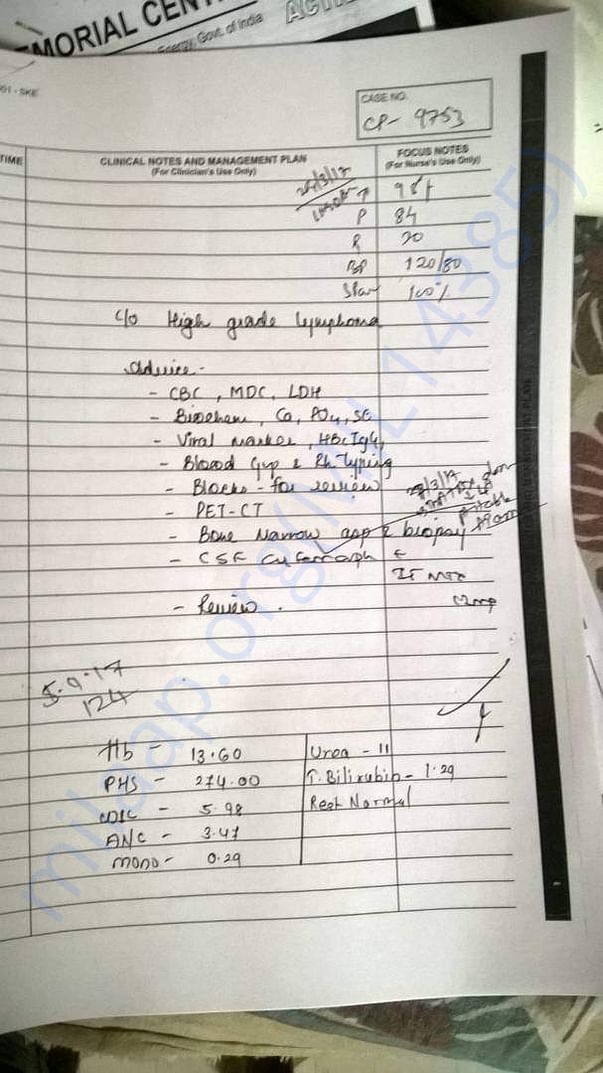 EMORIAL CEN
ACTR
Energy, Govt. of India
001 - SKE
CASE NO.
CP- 9753
TIME
CLINICAL NOTES AND MANAGEMENT PLAN
(For Clinician's Use Only)
FOCUS NOTES
(For Nurse's Use Only)
P 84
R 20
BP 120/80
100%
c/o High grade lymphoma
Advice -
- CBC, MDC, LDH
- Biochem, Ca, PO4, SE
- Viral marker, HBcIgG,
- Blood Grp & Rh Typing
- Blocks - for review
28/3/17
- PET-CT
- Bone Marrow asp & biopsy
- CSF
IT MTX
12mg
- Review.
5.9.17
124
Hb - 13.60
Urea - 11
274.00
T. Bilirubin - 1.29
5.98
Rest Normal
ANC - 3.47
mono - 0.29
milaap.org(MIL14385)